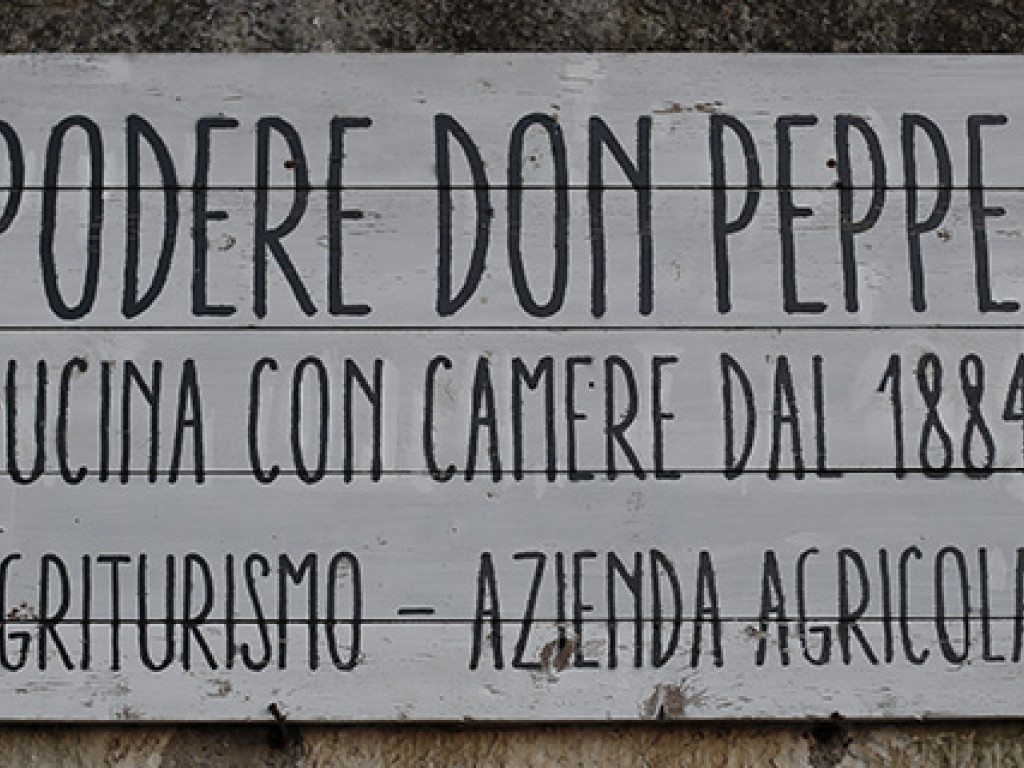 PODERE DON PEPPE
CUCINA CON CAMERE DAL 1884
AGRITURISMO – AZIENDA AGRICOLA